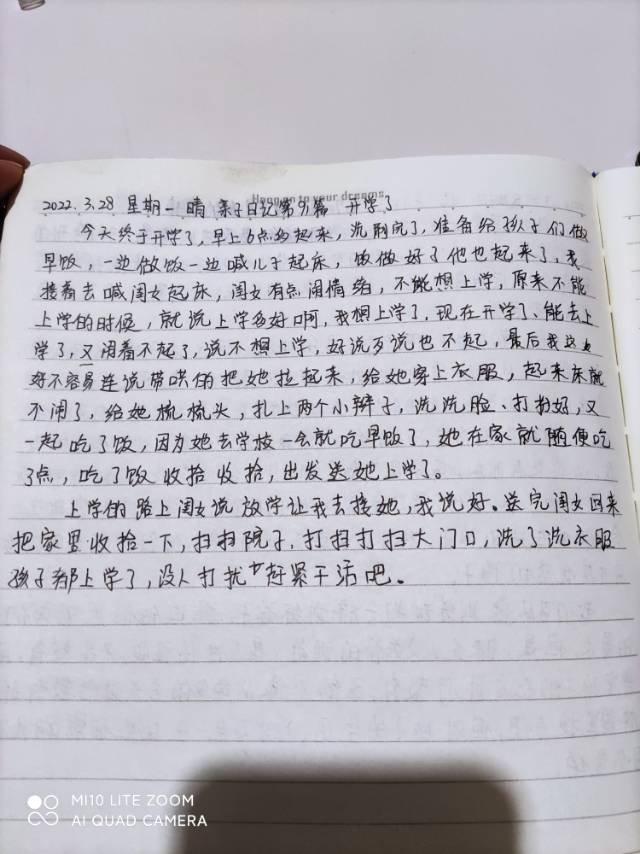 2022.3.28 星期一 晴 亲子日记第91篇 开学了
今天终于开学了,早上6点多起来,洗刷完了,准备给孩子们做
早饭,一边做饭一边喊儿子起床,饭做好了他也起来了,我
接着去喊闺女起床,闺女有点闹情绪,不能想上学,原来不能
上学的时候,就说上学多好啊,我想上学了,现在开学了、能去上
学了,又闹着不起了,说不想上学,好说歹说也不起,最后我这
好不容易连说带哄的把她拉起来,给她穿上衣服,起来床就
不闹了,给她梳梳头,扎上两个小辫子,洗洗脸、打扮好,又
一起吃了饭,因为她去学校一会就吃早饭了,她在家就随便吃
了点,吃了饭收拾收拾,出发送她上学了。
上学的路上闺女说放学让我去接她,我说好。送完闺女回来
把家里收拾一下,扫扫院子,打扫打扫大门口,洗了洗衣服
孩子都上学了,没人打扰赶紧干活吧。
MI10 LITE ZOOM
AI QUAD CAMERA